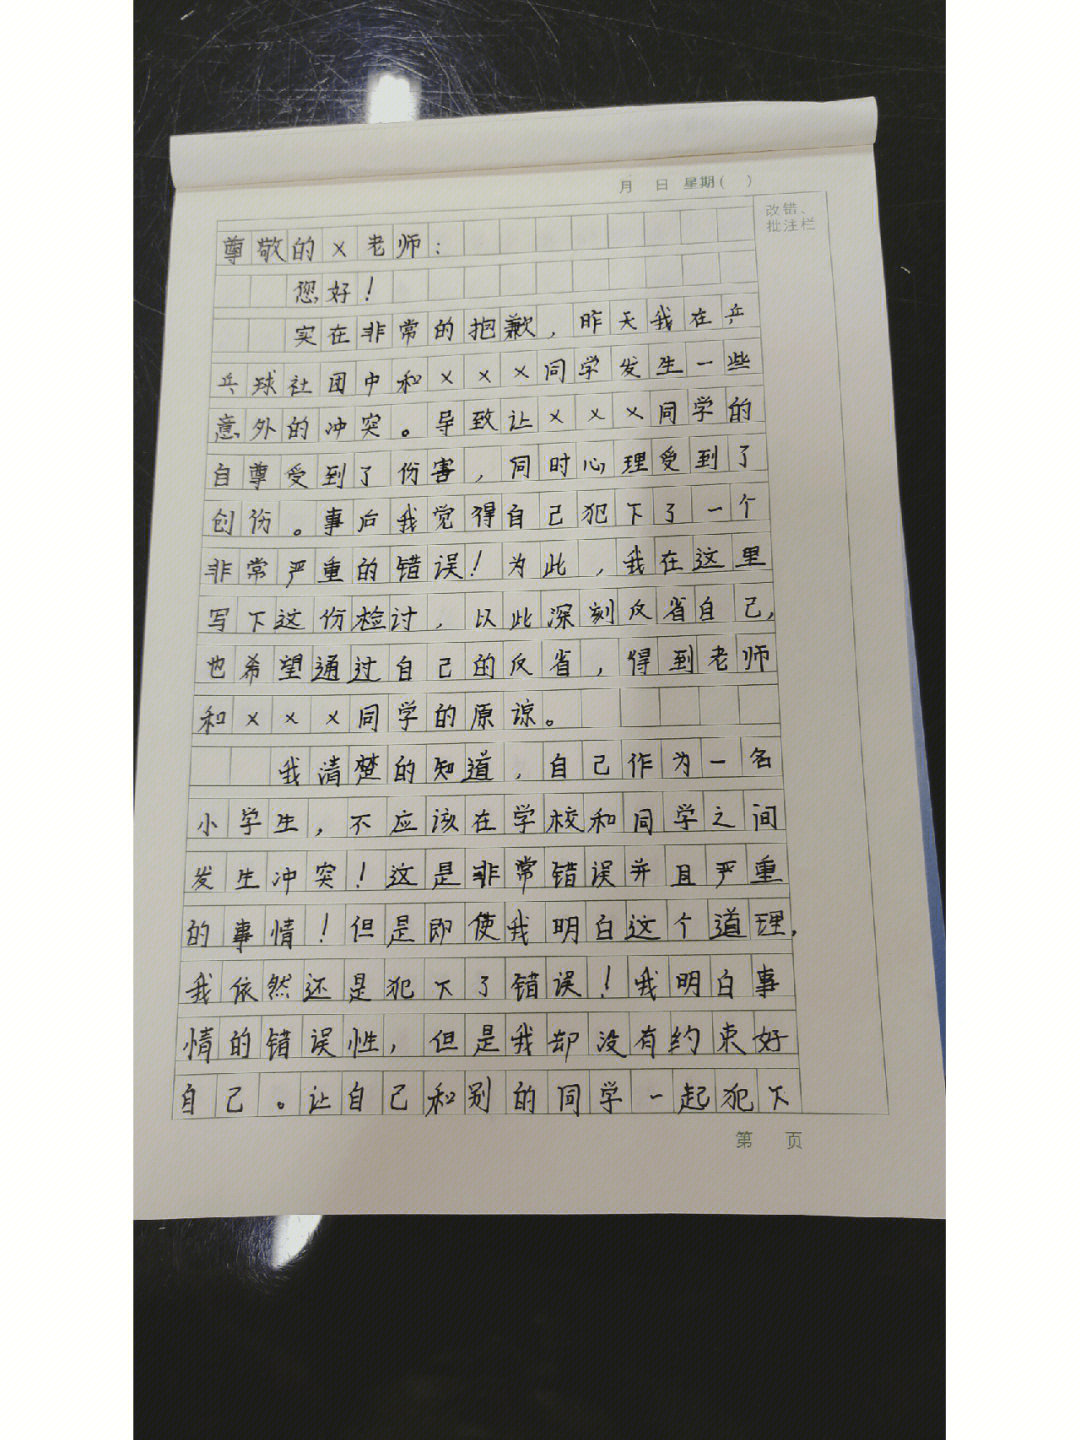 月 日 星期( )
改错、
批注栏
尊敬的x老师：
您好！
实在非常的抱歉，昨天我在乒
乓球社团中和xxx同学发生一些
意外的冲突。导致让xxx同学的
自尊受到了伤害，同时心理受到了
创伤。事后我觉得自己犯下了一个
非常严重的错误！为此，我在这里
写下这份检讨，以此深刻反省自己，
也希望通过自己的反省，得到老师
和xxx同学的原谅。
我清楚的知道，自己作为一名
小学生，不应该在学校和同学之间
发生冲突！这是非常错误并且严重
的事情！但是即使我明白这个道理，
我依然还是犯下了错误！我明白事
情的错误性，但是我却没有约束好
自己。让自己和别的同学一起犯下
第 页